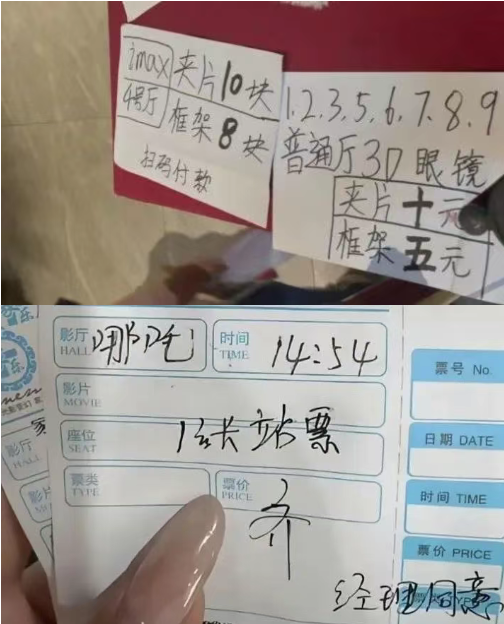 imax 夹片10块
4号厅 框架8块
扫码付款
1.2.3.5.6.7.8.9
普通厅3D眼镜
夹片十元
框架五元
影厅 哪吒 时间 14:54
HALL TIME
影片
MOVIE
座位 站票
SEAT
票类 票价
TYPE PRICE
齐
经理同意
票号 No.
日期 DATE
时间 TIME
票价 PRICE
影厅
HALL
影片